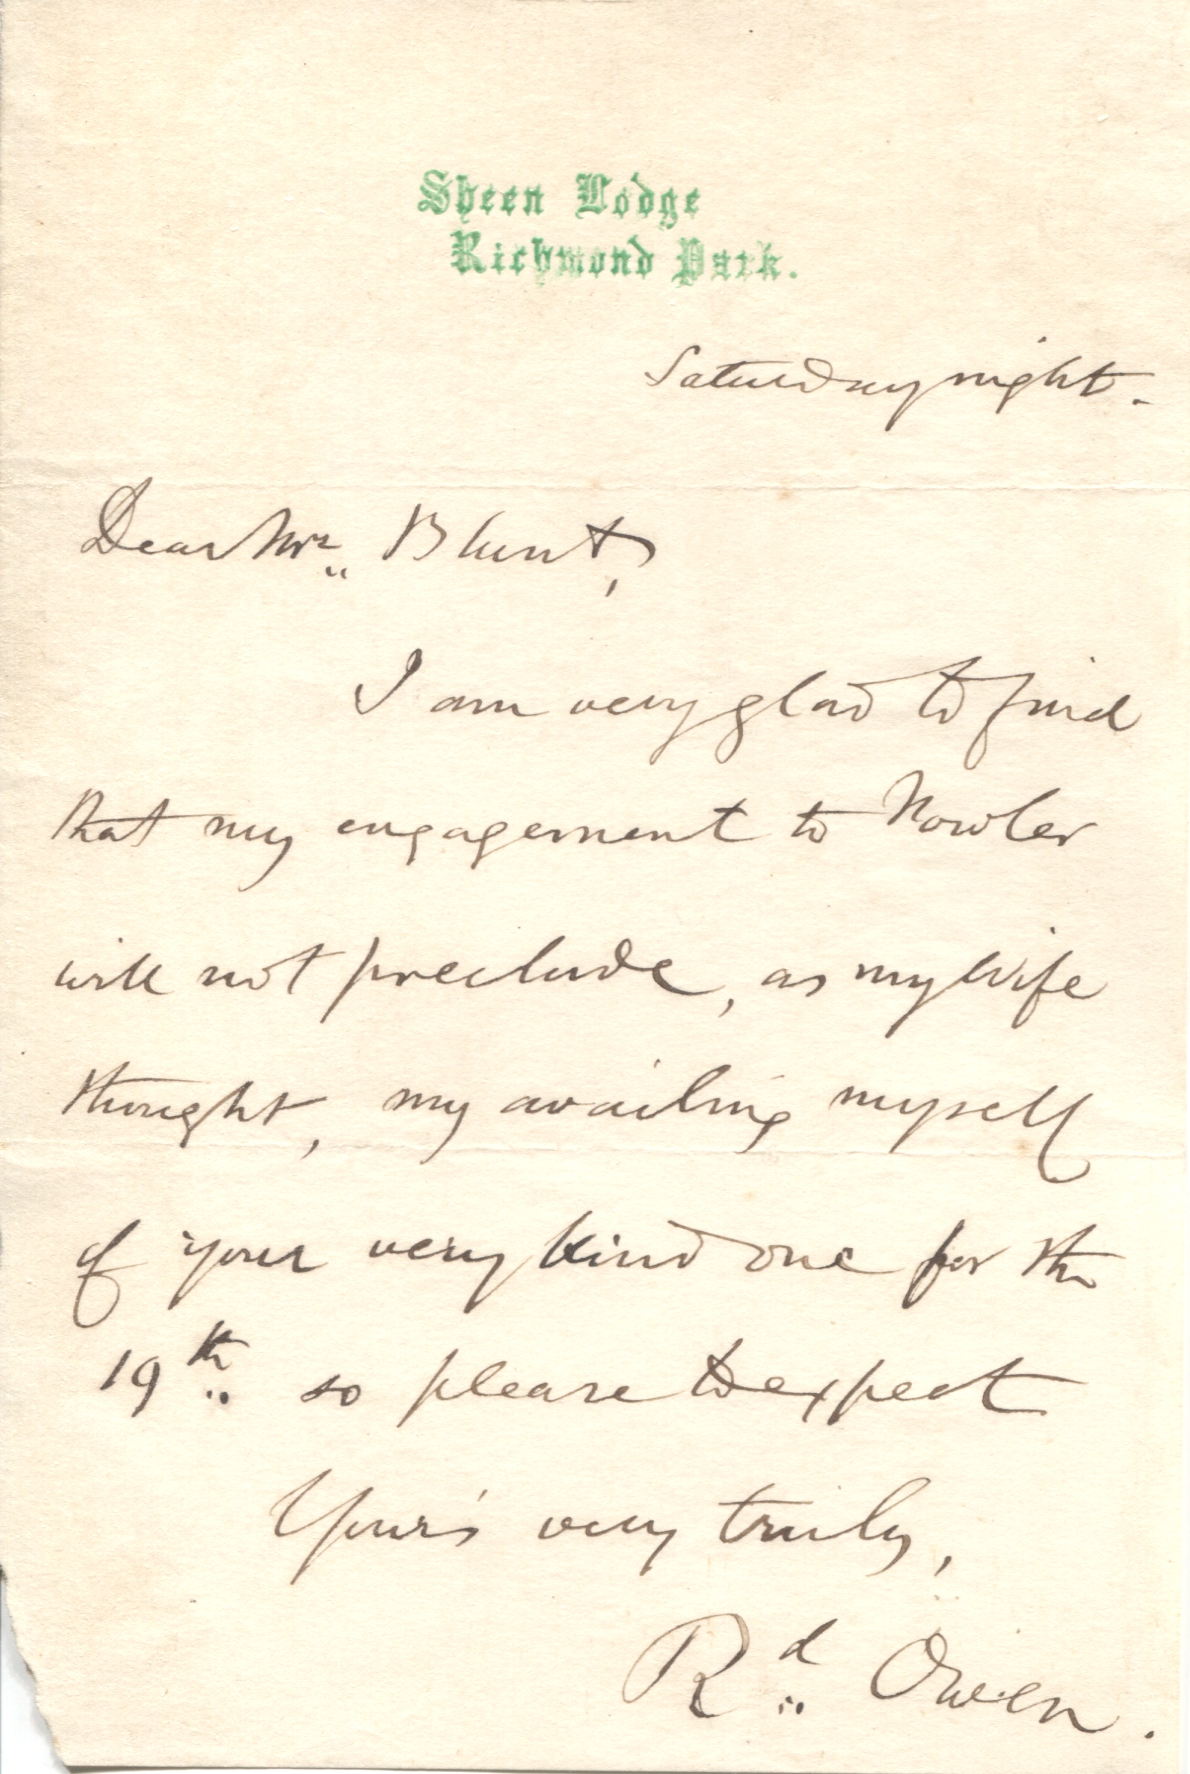 Sheen Lodge
Richmond Park.
Saturday night.
Dear Mrs. Blunt,
I am very glad to find
that my engagement to
will not preclude, as my wife
thought, my availing myself
of your very kind one for the
19th so please to expect
Your's very truly,
Rd Owen.